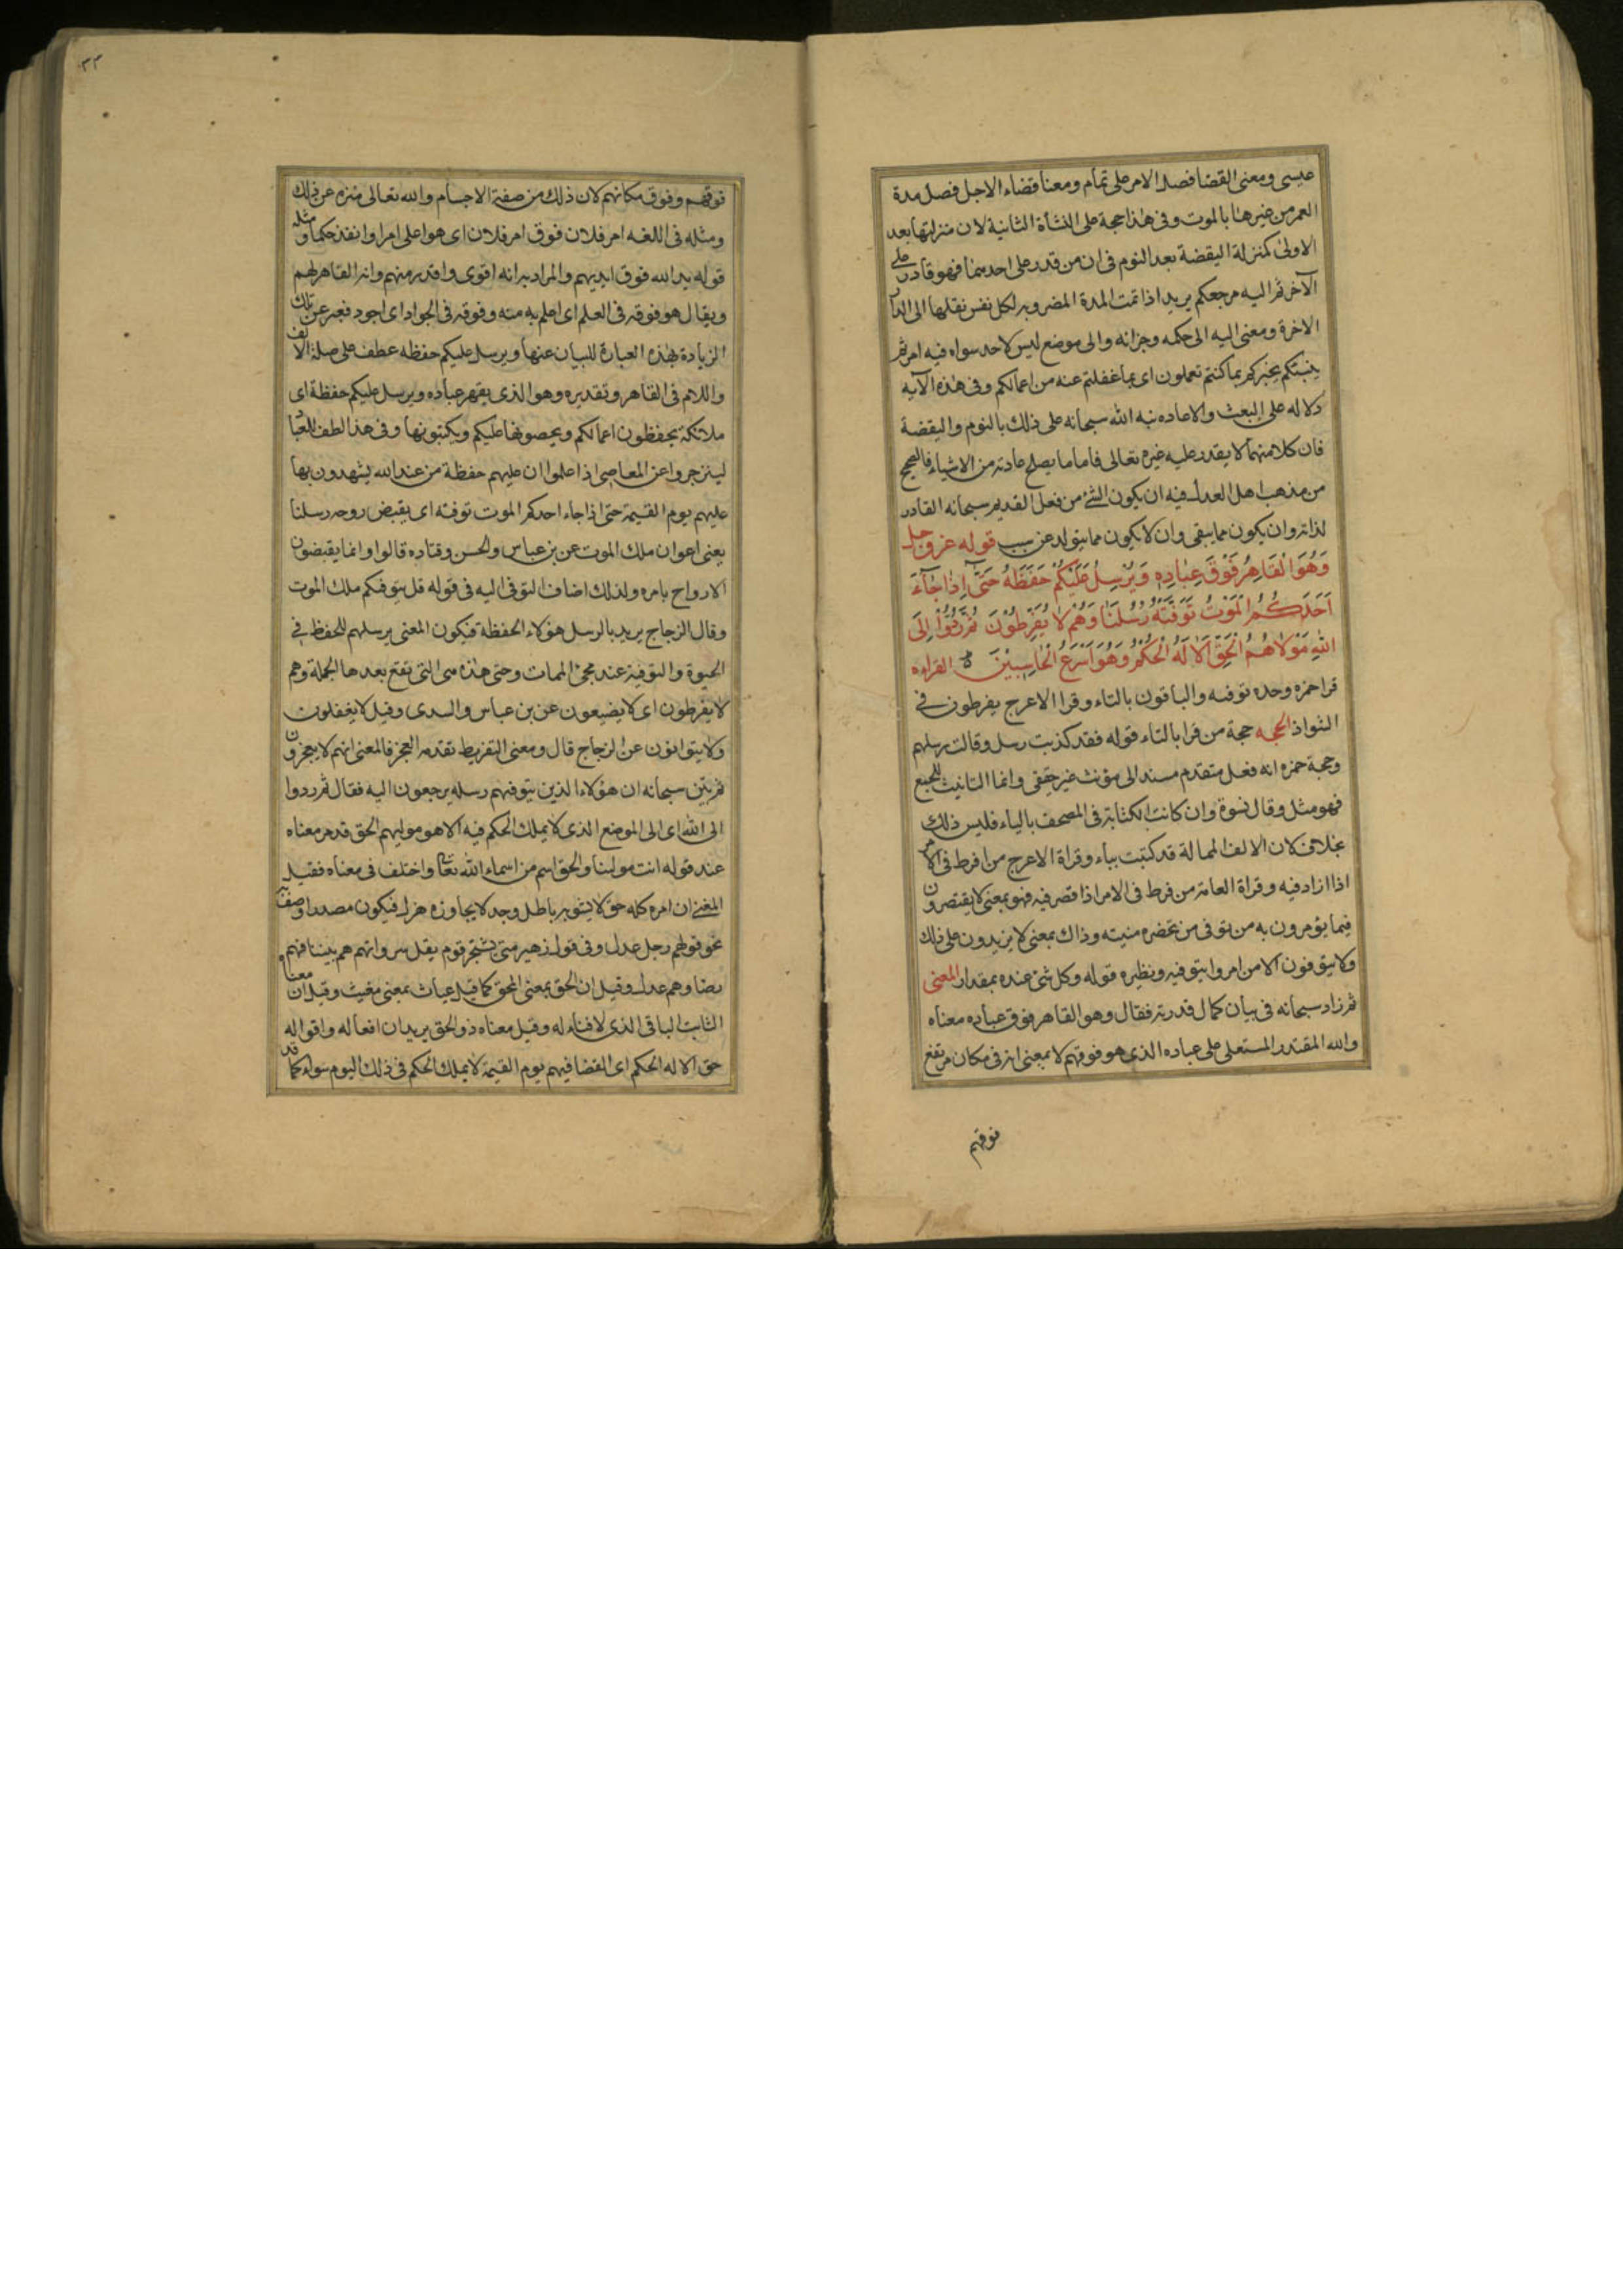 عيسى ومعنى القضا فصل الامر على تمام ومعنا قضاء الاجل فصل مدة
العمر من غيرهنا بالموت وفى هذا حجة على النشأة الثانية لان منزلتها بعد
الاولى كمنزلة اليقضة بعد النوم فى ان من قدر على احدهما فهو قادر على
الآخر ثم اليه مرجعكم يريد اذا تمت المدة المضروبه لكل نفس نقلها الى الدار
الاخرة ومعنى اليه الى حكمه وجزائه والى موضع ليس لاحد سواه فيه امر ثم
ينبئكم يخبركم بما كنتم تعملون اى بما غفلتم عنه من اعمالكم وفى هذه الآيه
دلاله على البعث والاعاده نبه الله سبحانه على ذلك بالنوم واليقضة
فان كلا منهما لا يقدر عليه غيره تعالى فاما ما يصلح عادته من الاشياء فالصحيح
من مذهب اهل العدل فيه ان يكون الشئ من فعل القديم سبحانه القادر
لذاته وان يكون مما يبقى وان لا يكون مما يتولد عن سبب قوله عز وجل
وَهُوَ الْقَاهِرُ فَوْقَ عِبَادِهِ وَيُرْسِلُ عَلَيْكُمْ حَفَظَةً حَتَّى اِذَا جَآءَ
اَحَدَكُمُ الْمَوْتُ تَوَفَّتْهُ رُسُلُنَا وَهُمْ لَا يُفَرِّطُوْنَ ثُمَّ رُدُّوْا اِلَى
اللهِ مَوْلَاهُمُ الْحَقِّ اَلَا لَهُ الْحُكْمُ وَهُوَ اَسْرَعُ الْحَاسِبِيْنَ القراءه
قرا حمزه وحده توفيه والباقون بالتاء وقرا الاعرج يفرطون فى
الشواذ الحجه حجة من قرا بالتاء قوله فقد كذبت رسل وقالت رسلهم
وحجة حمزه انه فعل متقدم مسند الى مؤنث غير حقيقى وانما التانيث للجمع
فهو مثل وقال نسوة وان كانت الكتابة فى المصحف بالياء فليس ذلك
بخلاف لان الالف الممالة قد كتبت بياء وقراة الاعرج من افرط فى الامر
اذا ازاد فيه وقراة العامة من فرط فى الامر اذا قصر فيه فهو بمعنى لا يقتصرون
فيما يؤمرون به من توفى من تحضره منيته وذاك بمعنى لا يزيدون على ذلك
ولا يتوفون الا من امروا بتوفيه ونظيره قوله وكل شئ عنده بمقدار المعنى
ثم زاد سبحانه فى بيان كمال قدرته فقال وهو القاهر فوق عباده معناه
والله المقتدر المستعلى على عباده الذى هو فوقهم لا بمعنى انه فى مكان مرتفع
فوقهم
٢٢
فوقهم وفوق مكانهم لان ذلك من صفة الاجسام والله تعالى منزه عن ذلك
ومثله فى اللغه امر فلان فوق امر فلان اى هو اعلى امرا وانفذ حكما ومثله
قوله يد الله فوق ايديهم والمراد به انه اقوى واقدر منهم وانه القاهر لهم
ويقال هو فوقه فى العلم اى اعلم به منه وفوقه فى الجود اى اجود فعبر عن تلك
الزيادة بهذه العبارة للبيان عنها ويرسل عليكم حفظه عطف على صلة الالف
واللام فى القاهر وتقديره وهو الذى يقهر عباده ويرسل عليكم حفظة اى
ملائكة يحفظون اعمالكم ويحصونها عليكم ويكتبونها وفى هذا لطف للعباد
لينزجروا عن المعاصى اذا علموا ان عليهم حفظة من عند الله يشهدون بها
عليهم يوم القيمة حتى اذا جاء احدكم الموت توفته اى يقبض روحه رسلنا
يعنى اعوان ملك الموت عن بن عباس والحسن وقتاده قالوا وانما يقبضون
الارواح بامره ولذلك اضاف التوفى اليه فى قوله قل يتوفكم ملك الموت
وقال الزجاج يريد بالرسل هؤلاء الحفظة فيكون المعنى يرسلهم للحفظ فى
الحيوة والتوفية عند مجئ الممات وحتى هذه هى التى تقع بعدها الجملة وهم
لا يفرطون اى لا يضيعون عن بن عباس والسدى وقيل لا يغفلون
ولا يتوانون عن الزجاج قال ومعنى التفريط تقدمه العجز فالمعنى انهم لا يعجزون
ثم بين سبحانه ان هؤلاء الذين يتوفهم رسله يرجعون اليه فقال ثم ردوا
الى الله اى الى الموضع الذى لا يملك الحكم فيه الا هو موليهم الحق قد مر معناه
عند قوله انت مولينا والحق اسم من اسماء الله تعا واختلف فى معناه فقيل
المعنى ان امره كله حق لا يشوبه باطل وجد لا يجاوزه هزل فيكون مصدرا وصف به
نحو قولهم رجل عدل وفى قول زهير متى يشتجر قوم يقل سرواتهم هم بيننا فهم
رضا وهم عدل وقيل ان الحق بمعنى المحق كما قيل غياث بمعنى مغيث وقيل ان معناه
الثابت الباقى الذى لا فناء له وقيل معناه ذو الحق يريد ان افعاله واقواله
حق الا له الحكم اى القضا فيهم يوم القيمة لا يملك الحكم فى ذلك اليوم سواه كما قد